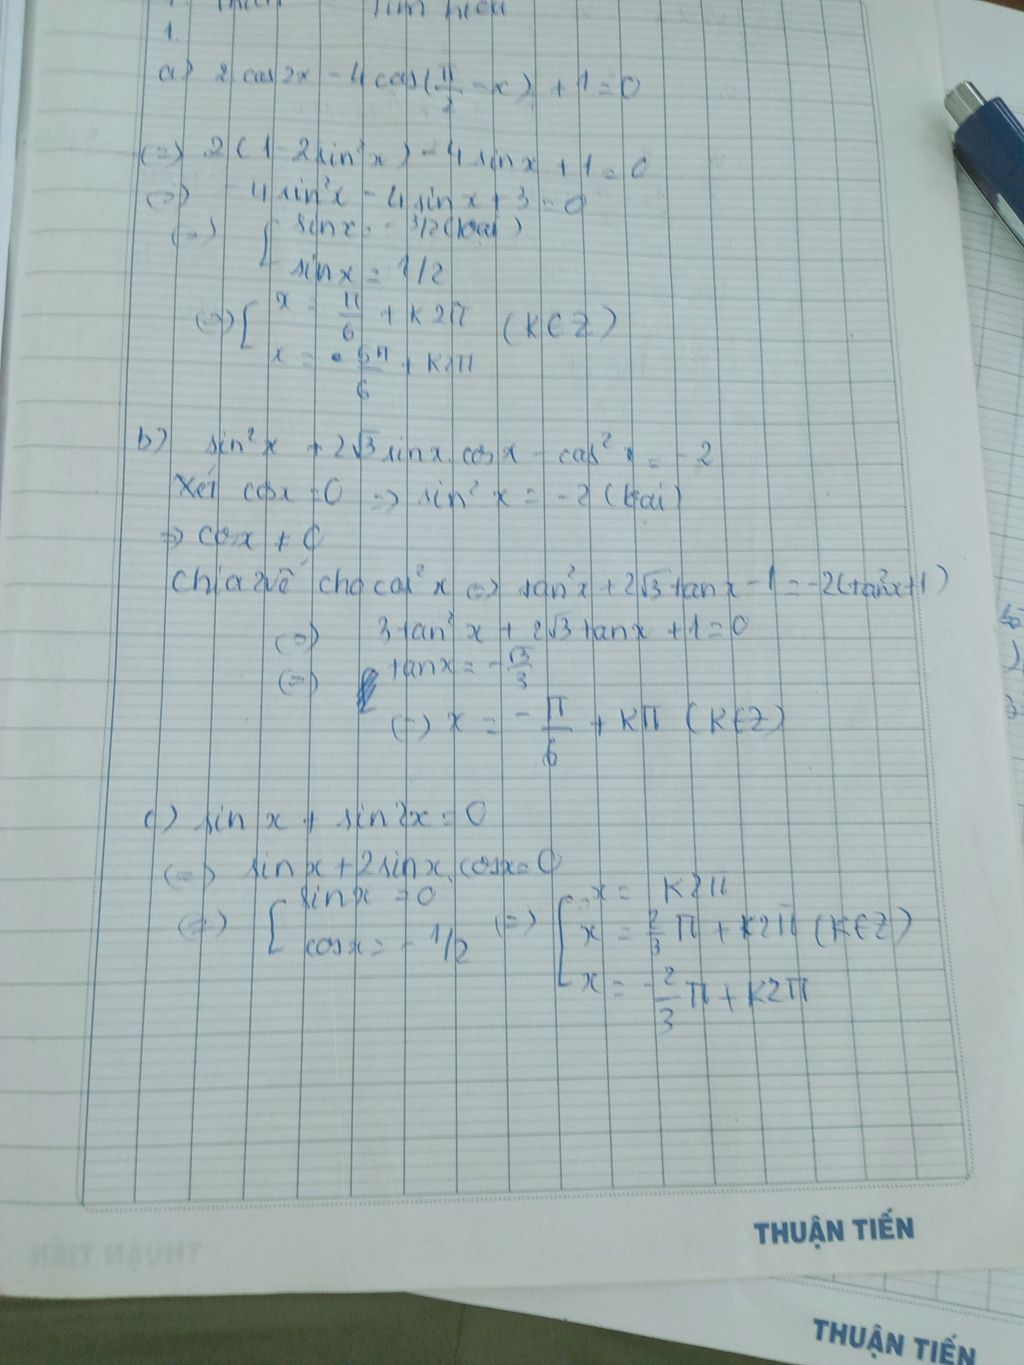 1.
a) 2 cos2x - 4 cos(π/2 - x) + 1 = 0
(=) 2(1 - 2sin²x) - 4 sinx + 1 = 0
(=) -4 sin²x - 4 sinx + 3 = 0
(=) [ sinx = - 3/2 (loại)
sinx = 1/2
(=) [ x = π/6 + k2π (k∈Z)
x = 5π/6 + k2π
b) sin²x + 2√3 sinx.cosx - cos²x = -2
Xét cosx = 0 => sin²x = -2 (loại)
=> cosx ≠ 0
Chia 2 vế cho cos²x (=) tan²x + 2√3 tanx - 1 = -2(tan²x+1)
(=) 3tan²x + 2√3 tanx + 1 = 0
(=) tanx = -√3/3
(=) x = -π/6 + kπ (k∈Z)
c) sin x + sin2x = 0
(=) sinx + 2sinx.cosx = 0
(=) [ sinx = 0
cosx = - 1/2 (=) [ x = k2π
x = 2/3 π + k2π (k∈Z)
x = -2/3 π + k2π
THUẬN TIẾN
THUẬN TIẾN